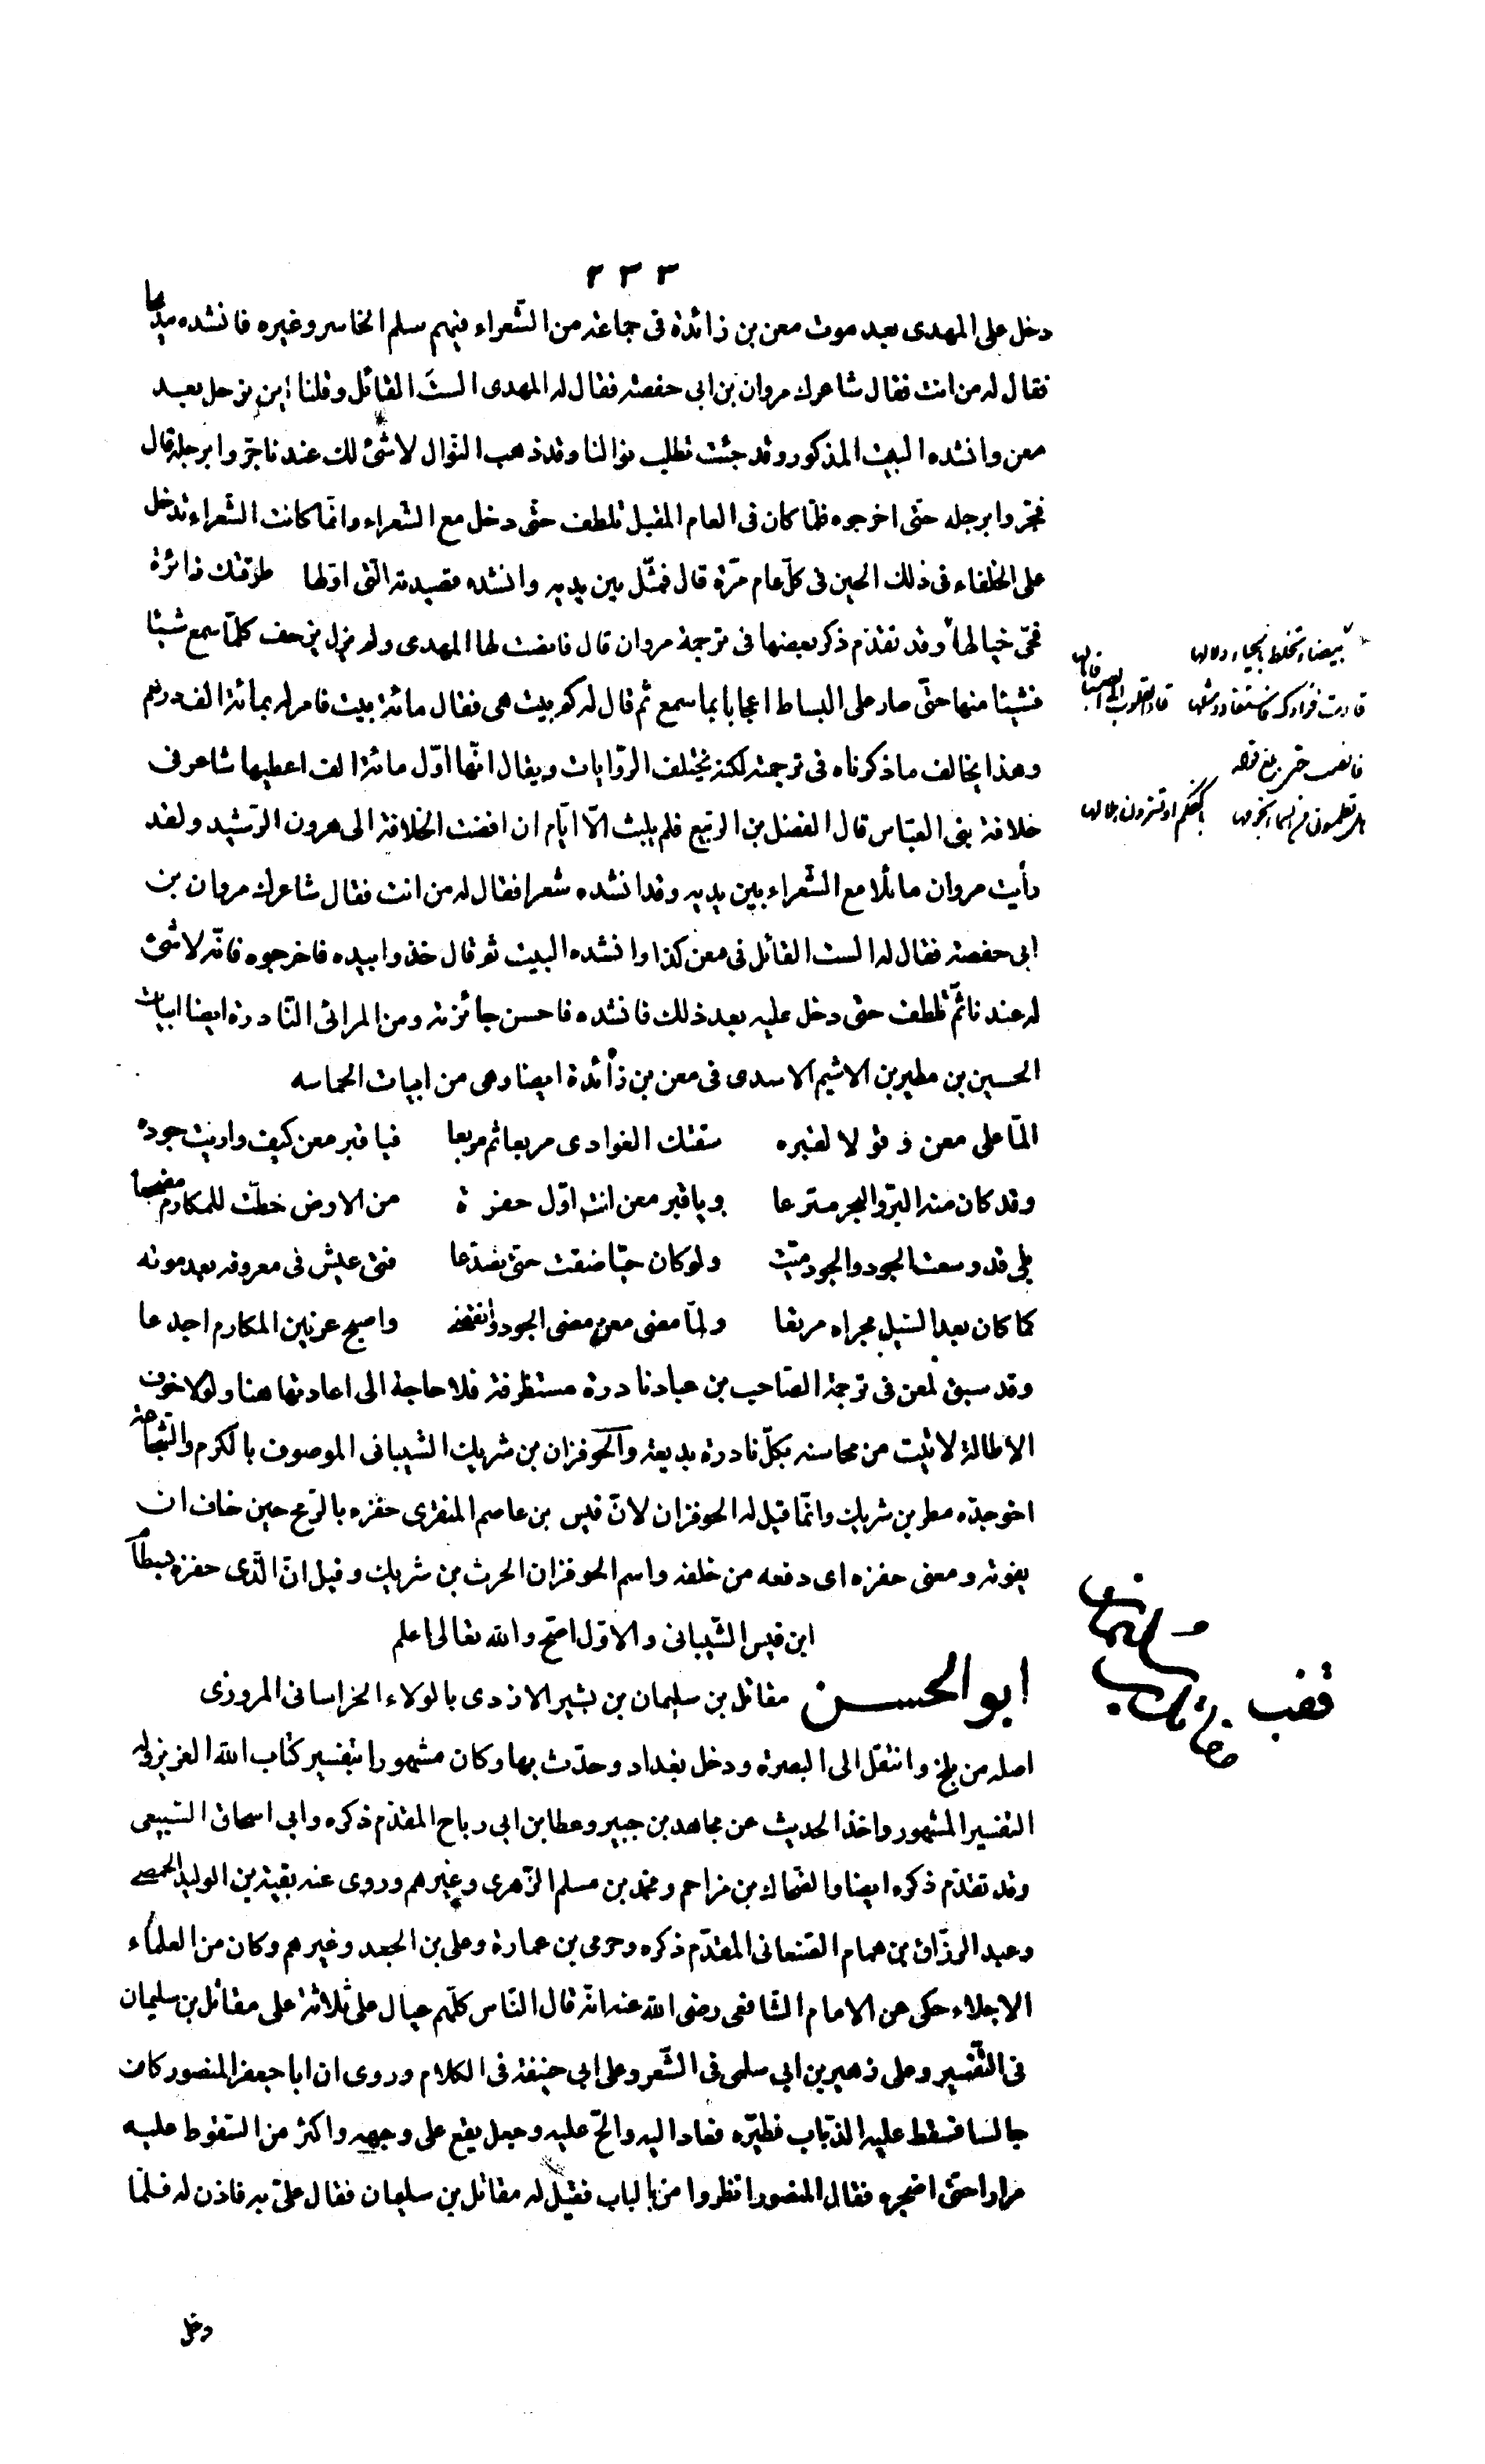 ٢٣٣
دخل على المهدى بعد موت معن بن زائدة فى جماعة من الشّعراء فيهم سلم الخاسر وغيره فانشده مديحا
فقال له من انت فقال شاعرك مروان بن ابى حفصة فقال له المهدى الستَ القائل وقلنا اين نرحل بعد
معن وانشده البيت المذكور وقد جئت تطلب نوالنا وقد ذهب النّوال لا شئ لك عندنا جرّوا برجله قال
فجرّوا برجله حتى اخرجوه فلمّا كان فى العام المقبل تلطف حتّى دخل مع الشعراء وانّما كانت الشّعراء تدخل
على الخلفاء فى ذلك الحين فى كلّ عام مرّة قال فمثّل بين يديه وانشده قصيدته الّتى اوّلها طرقتك زائرة
فحىّ خيالها وقد تقدّم ذكر بعضها فى ترجمة مروان قال فانصت لها المهدى ولم يزل يزحف كلّما سمع شيئا
فشيئا منها حتّى صار على البساط اعجابا بما سمع ثم قال له كم بيت هى فقال مائة بيت فامر له بمائة الف درهم
وهذا يخالف ما ذكرناه فى ترجمته لكنه تختلف الرّوايات ويقال انّها اوّل مائة الف اعطيها شاعر فى
خلافة بنى العبّاس قال الفضل بن الربيع فلم يلبث الّا ايّام ان افضت الخلافة الى هرون الرّشيد ولقد
رأيت مروان ماثلا مع الشّعراء بين يديه وقد انشده شعرا فقال له من انت فقال شاعرك مروان بن
ابى حفصة فقال له الست القائل فى معن كذا وانشده البيت ثم قال خذوا بيده فاخرجوه فانّه لا شئ
له عندنا ثمّ تلطف حتى دخل عليه بعد ذلك فانشده فاحسن جائزته ومن المراثى النّادرة ايضا ابيات
الحسين بن مطير بن الاشيم الاسدى فى معن بن زائدة ايضا وهى من ابيات الحماسه
المّا على معن وقولا لقبره سقتك الغوادى مربعا ثم مربعا فيا قبر معن كيف واريت جوده
وقد كان منه البرّ والبحر مترعا ويا قبر معن انت اوّل حفرة من الارض خطّت للمكارم مضجعا
بلى قد وسعت الجود والجود ميّت ولو كان حيّا ضقت حتّى تصدّعا فتى عيش فى معروفه بعد موته
كما كان بعد السّيل مجراه مرتعا ولمّا مضى معن مضى الجود وانقضى واصبح عرنين المكارم اجدعا
وقد سبق لمعن فى ترجمة الصّاحب بن عباد نادرة مستظرفة فلا حاجة الى اعادتها هنا ولولا خوف
الاطالة لاثبت من محاسنه بكلّ نادرة بديعة والحوفزان بن شريك الشيبانى الموصوف بالكرم والشّجاعة
اخو جدّه مطر بن شريك وانّما قيل له الحوفزان لانّ قيس بن عاصم المنقرى حفزه بالرّمح حين خاف ان
يفوته ومعنى حفزه اى دفعه من خلفه واسم الحوفزان الحرث بن شريك وقيل انّ الّذى حفزه بسطام
ابن قيس الشّيبانى والاوّل اصحّ والله تعالى اعلم
ابو الحسن مقاتل بن سليمان بن بشير الازدى بالولاء الخراسانى المروزى
اصله من بلخ وانتقل الى البصرة ودخل بغداد وحدّث بها وكان مشهورا بتفسير كتاب الله العزيز وله
التفسير المشهور واخذ الحديث عن مجاهد بن جبير وعطا بن ابى رباح المقدّم ذكره وابى اسحاق السّبيعى
وقد تقدّم ذكره ايضا والضحاك بن مزاحم ومحمد بن مسلم الزّهرى وغيرهم وروى عنه بقية بن الوليد الحمصى
وعبد الرزّاق بن همام الصّنعانى المقدّم ذكره وحرمى بن عمارة وعلى بن الجعد وغيرهم وكان من العلماء
الاجلاء حكى عن الامام الشّافعى رضى الله عنه انّه قال النّاس كلّهم عيال على ثلاثة على مقاتل بن سليمان
فى التّفسير وعلى زهير بن ابى سلمى فى الشّعر وعلى ابى حنيفة فى الكلام وروى ان ابا جعفر المنصور كان
جالسا فسقط عليه الذّباب فطيّره فعاد اليه والحّ عليه وجعل يقع على وجهه واكثر من السّقوط عليه
مرارا حتى اضجره فقال المنصور انظروا من بالباب فقيل له مقاتل بن سليمان فقال علىّ به فاذن له فلمّا
دخل
بيضاء تخلط بالحياء دلالها
قادت فؤادك فاستقاد ومثلها قاد القلوب الى الصبا فامالها
فانصت حتى بلغ قوله
هل تطمسون من السماء نجومها باكفكم او تسترون هلالها
قضب
مقاتل بن سليمان